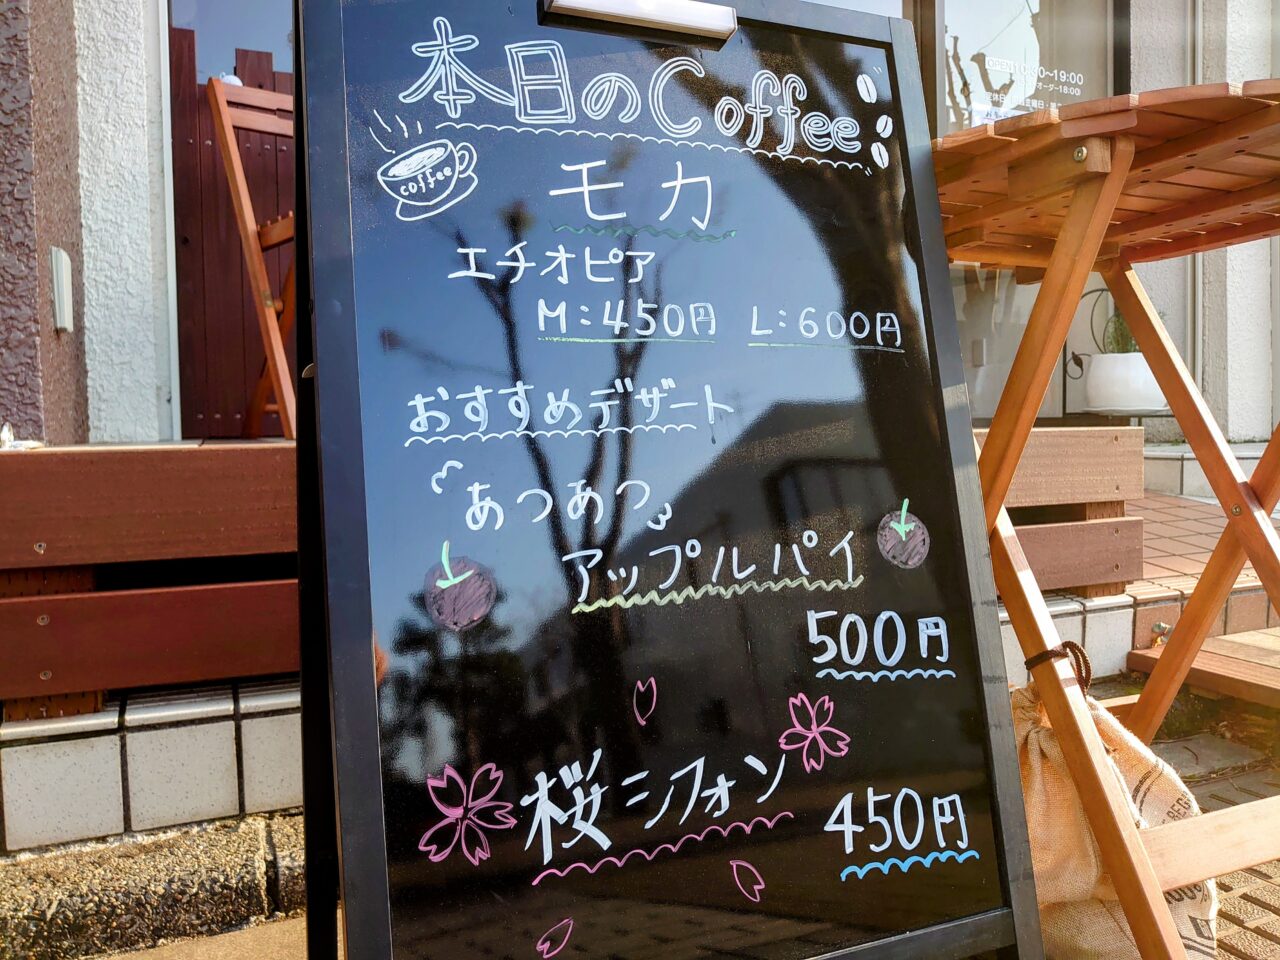 本日のCoffee
coffee
モカ
エチオピア
M:450円 L:600円
おすすめデザート
あつあつ
アップルパイ
500円
桜シフォン
450円
OPEN
~19:00
オーダー18:00